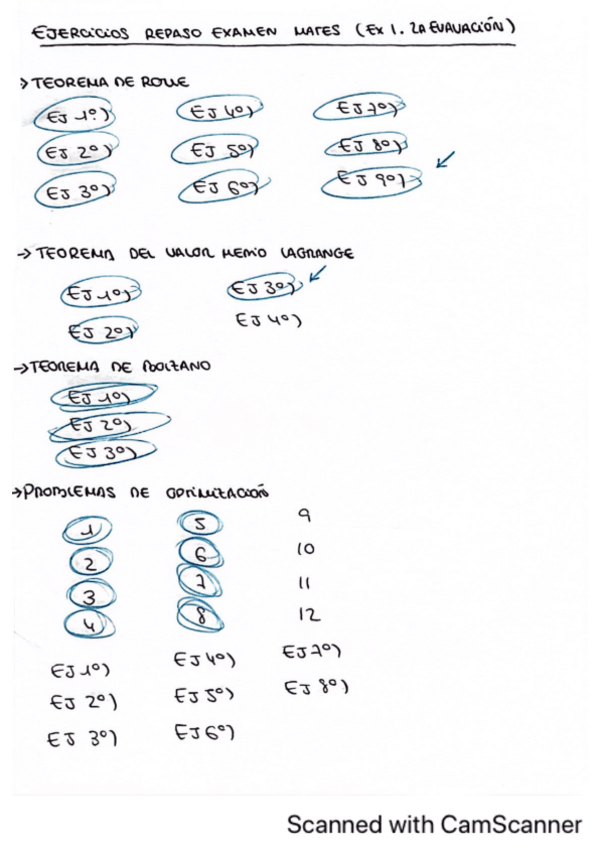 EJERCICIOS REPASO EXAMEN MATES (EX 1. 2A EVALUACIÓN)
> TEOREMA DE ROLLE
EJ 1º) EJ 4º) EJ 7º)
EJ 2º) EJ 5º) EJ 8º)
EJ 3º) EJ 6º) EJ 9º)
→ TEOREMA DEL VALOR MEDIO LAGRANGE
EJ 1º) EJ 3º)
EJ 2º) EJ 4º)
→ TEOREMA DE BOLZANO
EJ 1º)
EJ 2º)
EJ 3º)
→ PROBLEMAS DE OPTIMIZACIÓN
1 5 9
2 6 10
3 7 11
4 8 12
EJ 1º) EJ 4º) EJ 7º)
EJ 2º) EJ 5º) EJ 8º)
EJ 3º) EJ 6º)
Scanned with CamScanner